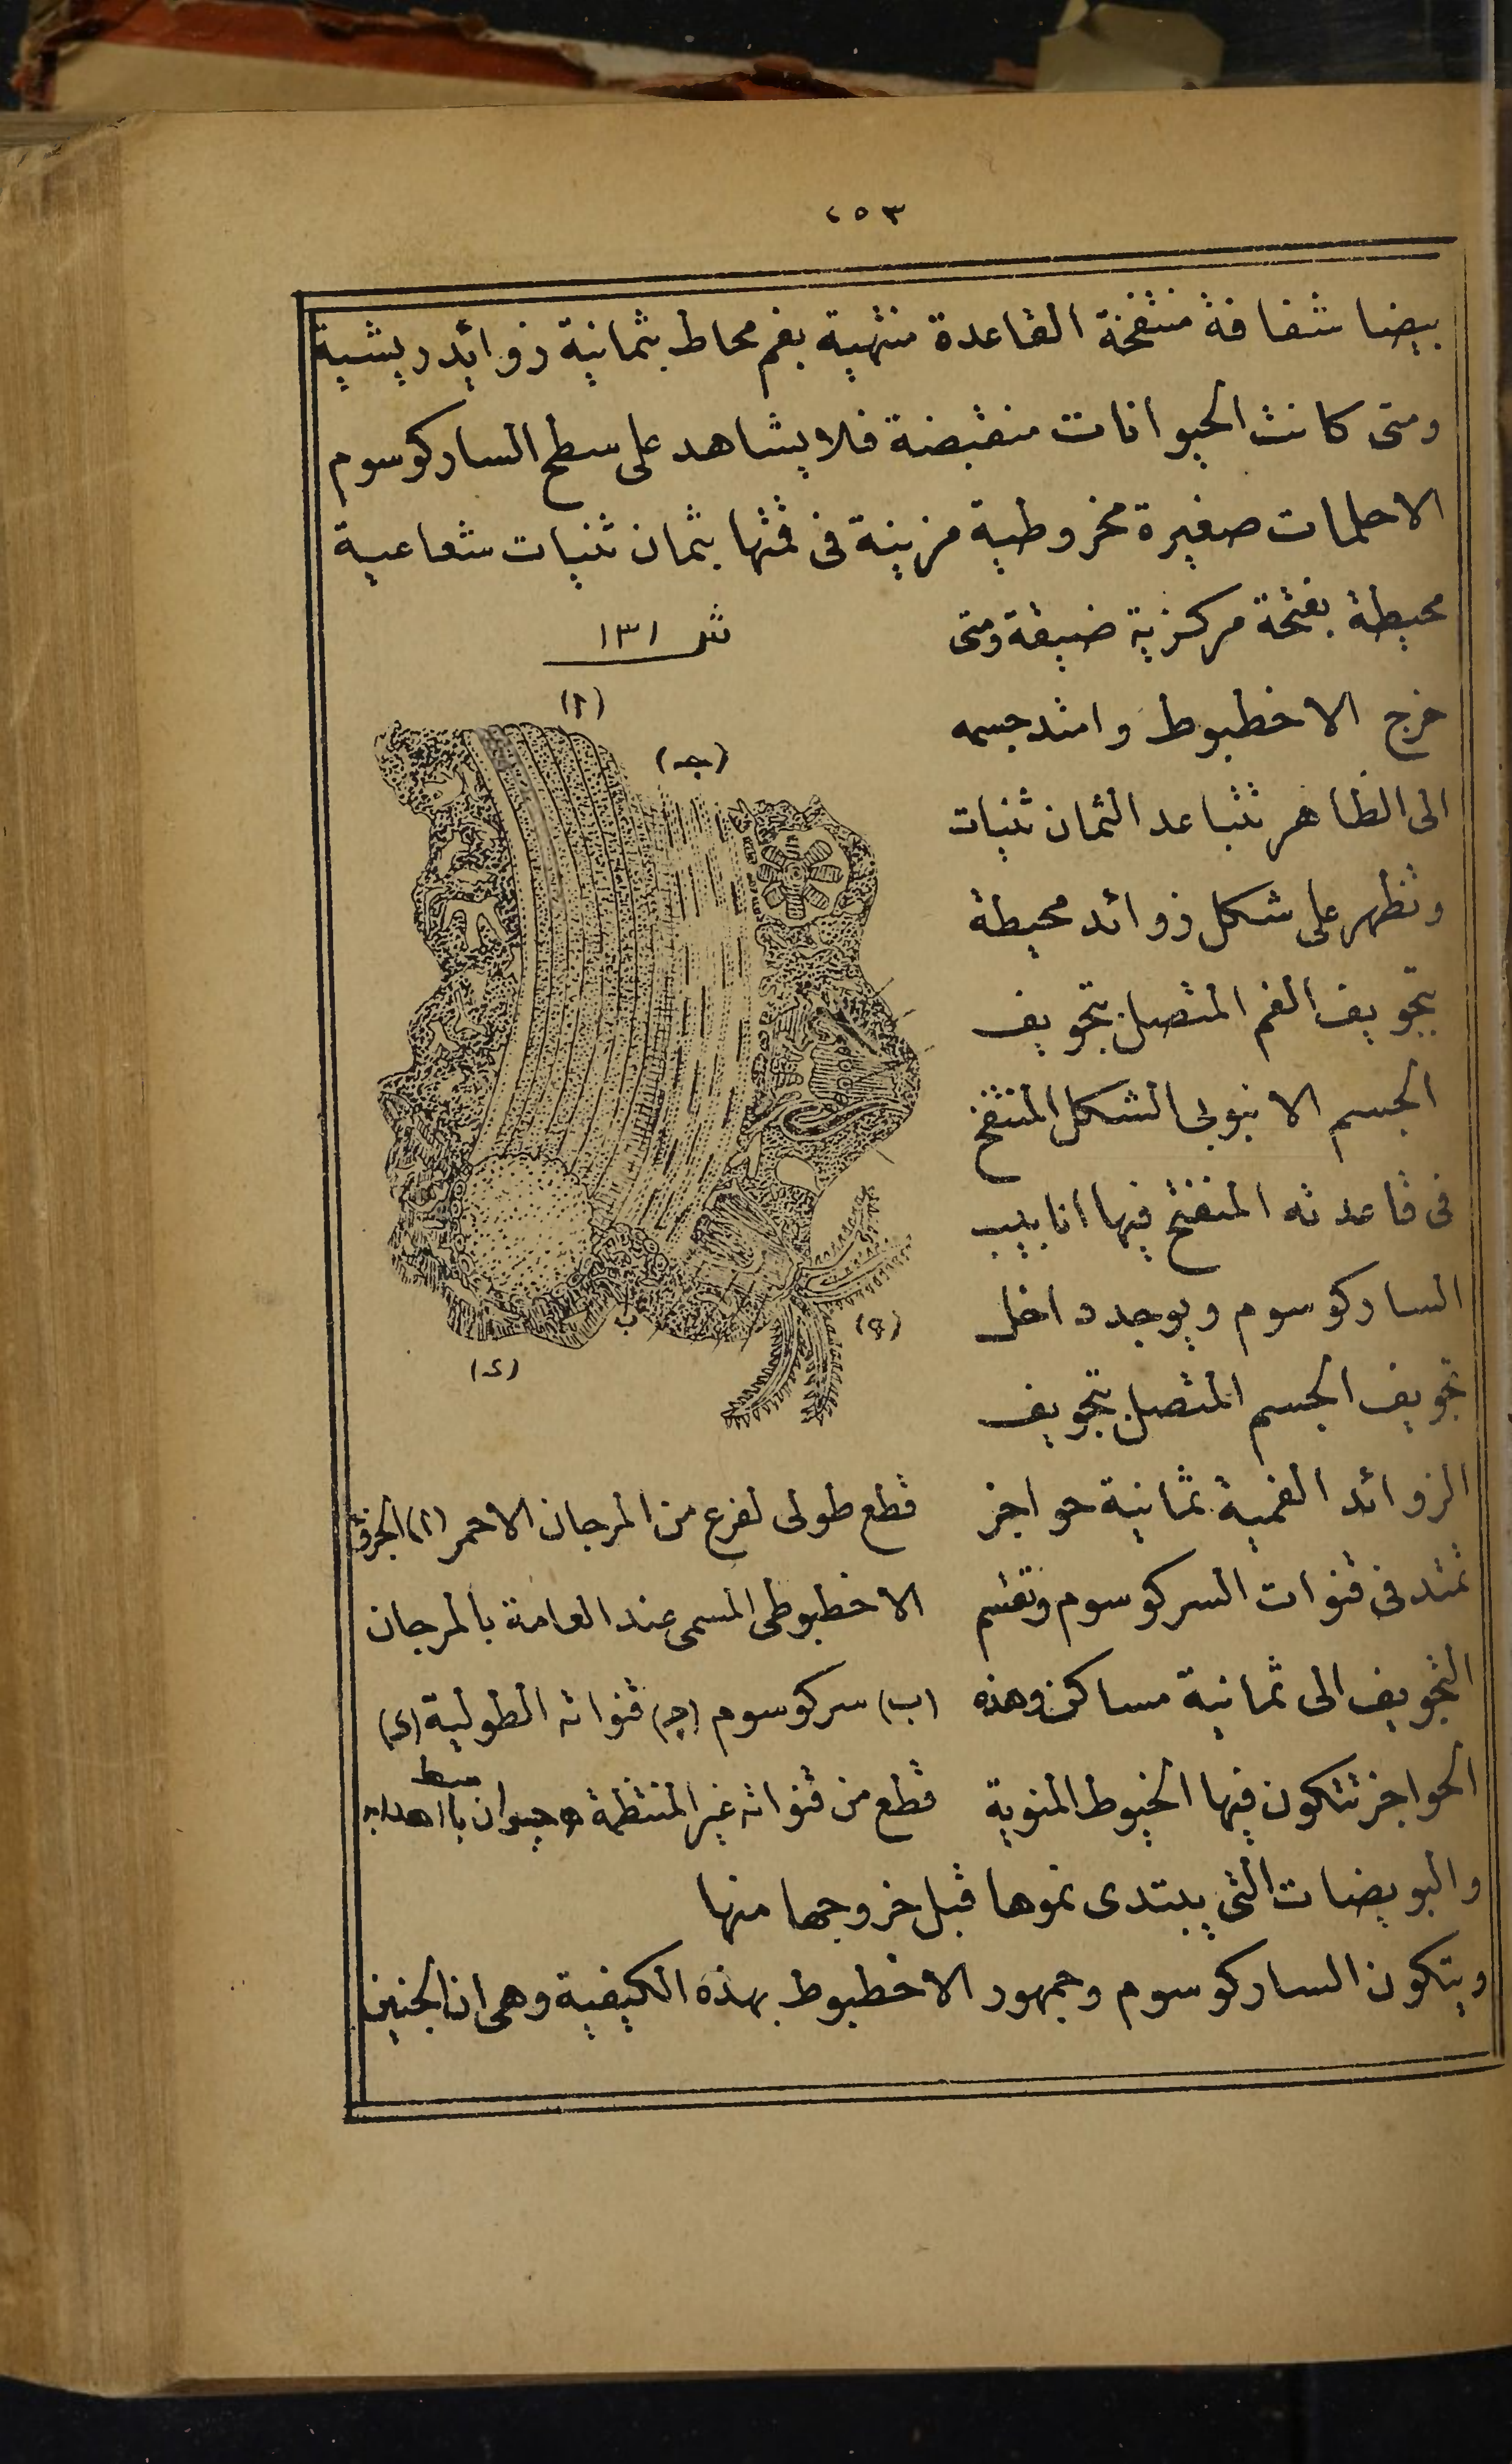 ٢٥٣
بيضا شفافة منتفخة القاعدة منتهية بفم محاط بثمانية زوائد ريشية
ومتى كانت الحيوانات منقبضة فلا يشاهد على سطح الساركوسوم
الا حلمات صغيرة مخروطية مزينة فى قمتها بثمان ثنيات شعاعية
محيطة بفتحة مركزية ضيقة ومتى
خرج الاخطبوط وامتد جسمه
الى الظاهر تتباعد الثمان ثنيات
وتظهر على شكل زوائد محيطة
بتجويف الفم المتصل بتجويف
الجسم الانبوبى الشكل المنتفخ
فى قاعدته المنفتح فيها انابيب
الساركوسوم ويوجد داخل
تجويف الجسم المتصل بتجويف
الزوائد الفمية ثمانية حواجز
تمتد فى قنوات السركوسوم وتقسم
التجويف الى ثمانية مساكن وهذه
الحواجز تتكون فيها الخيوط المنوية
شكل ١٣١
(ا)
(جـ)
ب
(ه)
(د)
قطع طولى لفرع من المرجان الاحمر (ا) الجزؤ
الاخطبوطى المسمى عند العامة بالمرجان
(ب) سركوسوم (جـ) قنواته الطولية (د)
قطع من قنواته غير المنتظمة ه حيوان باهدابه
والبويضات التى يبتدى نموها قبل خروجها منها
ويتكون الساركوسوم وجمهور الاخطبوط بهذه الكيفية وهى ان الجنين